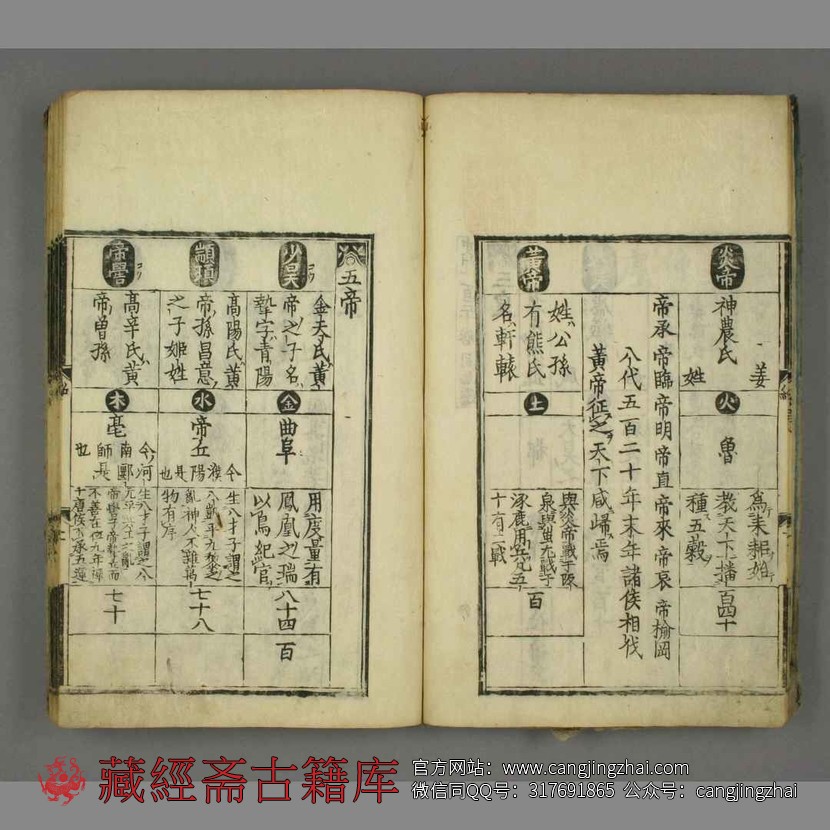 炎帝
神農氏
姜
姓
火
魯
為耒耜始
教天下播
種五穀
百四十
帝承 帝臨 帝明 帝直 帝來 帝哀 帝榆岡
八代五百二十年末年諸侯相伐
黃帝征之天下咸歸焉
黃帝
姓公孫
有熊氏
名軒轅
土
與炎帝戰于阪
泉與蚩尤戰于
涿鹿用兵凡五
十有二戰
百
五帝
少昊
金天氏黃
帝之子名
摯字青陽
金
曲阜
用度量有
鳳凰之瑞
以鳥紀官
八十四
百
顓頊
高陽氏黃
帝孫昌意
之子姬姓
水
帝丘
今
濮陽是也
生八才子謂之
八凱平九黎之
亂神人不雜萬
物有序
七十八
帝嚳
高辛氏黃
帝曾孫
木
亳
今河
南郾
師是
也
生八才子謂之八
七十
藏經斋古籍库
官方网站：www.cangjingzhai.com
微信同QQ号：317691865 公众号：cangjingzhai